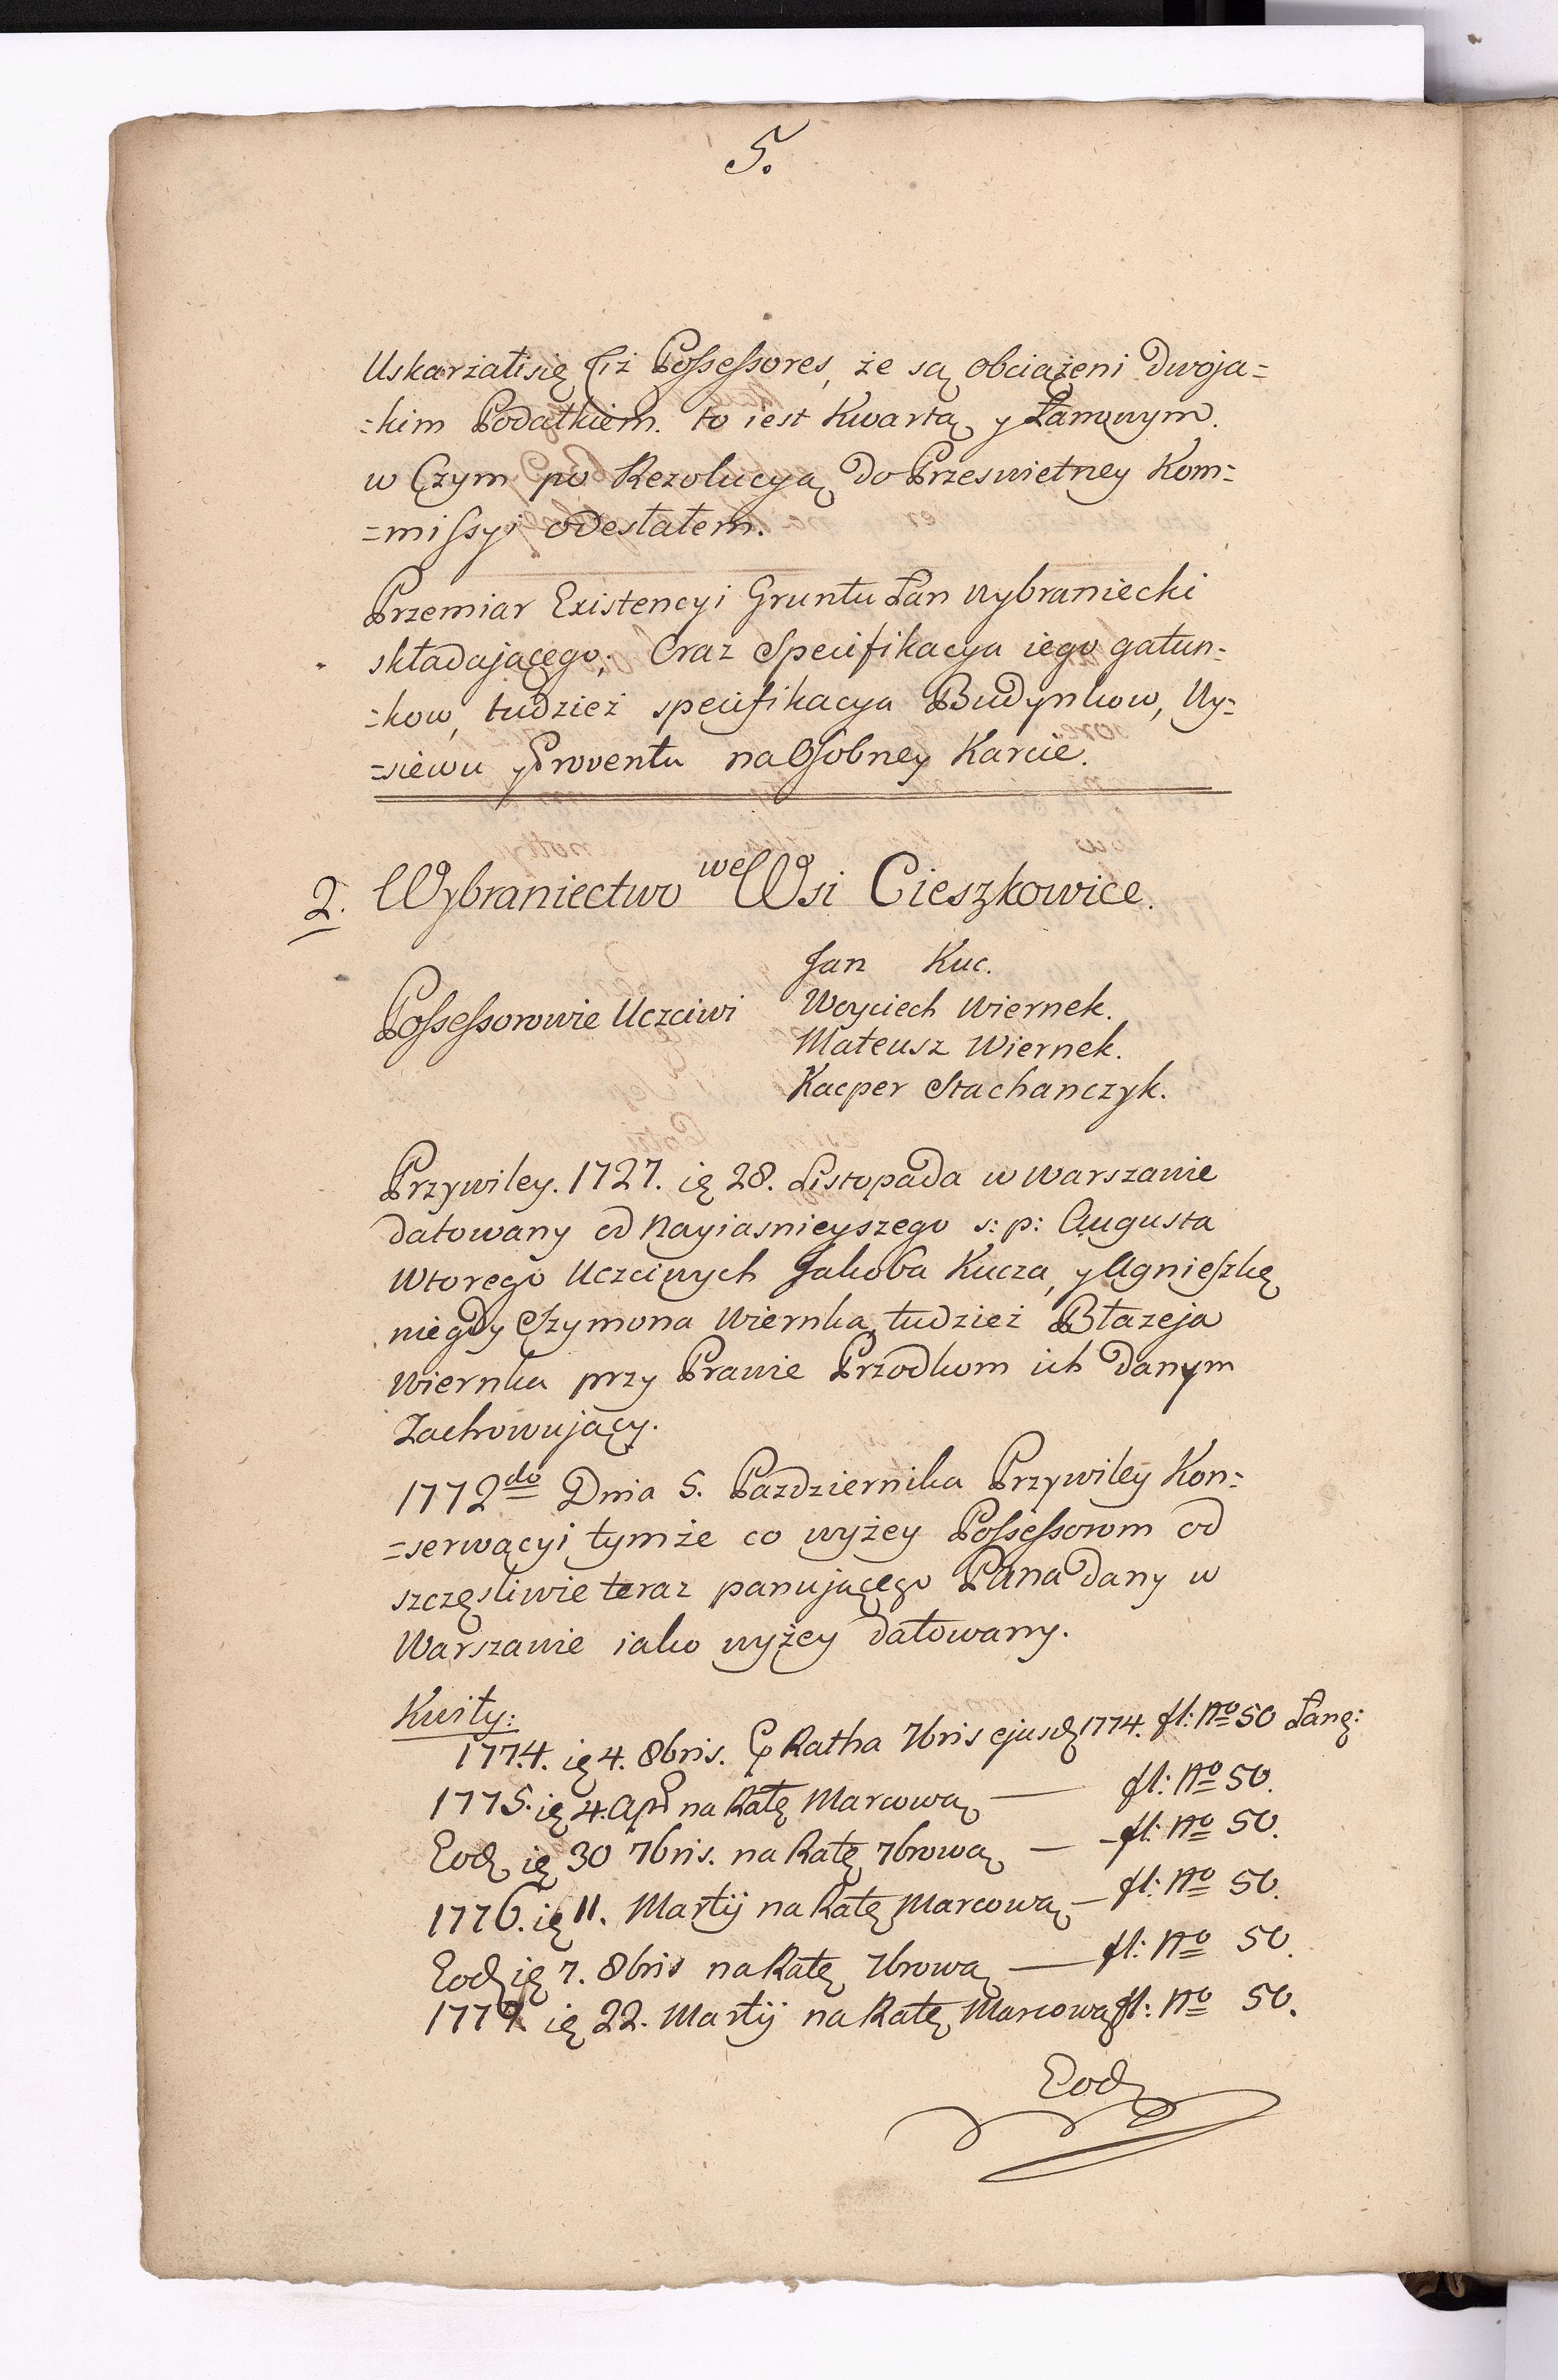 5.
Uskarżali się Ciż Possessores, że są obciążeni dwoja=
=kim Podatkiem. to iest Kwartą y Łanowym.
w Czym po Rezolucyą do Przeswietney Kom=
=missyi odesłałem.
Przemiar Existencyi Gruntu Łan wybraniecki
składającego; Oraz Specifikacya iego gatun=
=kow, tudzież specifikacya Budynkow, Wy=
=siewu y Prowentu na Osobney Karcie.
2. Wybraniectwo we Wsi Cieszkowice.
Jan Kuc.
Possessorowie Uczciwi Woyciech Wiernek.
Mateusz Wiernek.
Kacper Stachanczyk.
Przywiley. 1727. ię 28. Listopada w Warszawie
datowany od Nayiasnieyszego s: p: Augusta
Wtorego Uczciwych Jakoba Kucza, y Agnieszkę
niegdy Szymona Wiernka, tudzież Błazeja
Wiernka przy Prawie Przodkom ich danym
Zachowujący.
1772do Dnia 5. Pazdziernika Przywiley Kon=
=serwacyi tymże co wyżey Possessorom od
szczęsliwie teraz panującego Pana dany w
Warszawie iako wyżey datowany.
Kwity:
1774. ię 4. 8bris. P Ratha 7bris ejusd 1774. fl: No 50 Łanę:
1775. ię 4. Apr na Ratę Marcową — fl: No 50.
Eod ię 30 7bris. na Ratę 7brową — fl: No 50.
1776. ię 11. Martij na Ratę Marcową — fl: No 50.
Eod ię 7. 8bris na Ratę 7brową — fl: No 50.
1777. ię 22. Martij na Ratę Marcową fl: No 50.
Eod